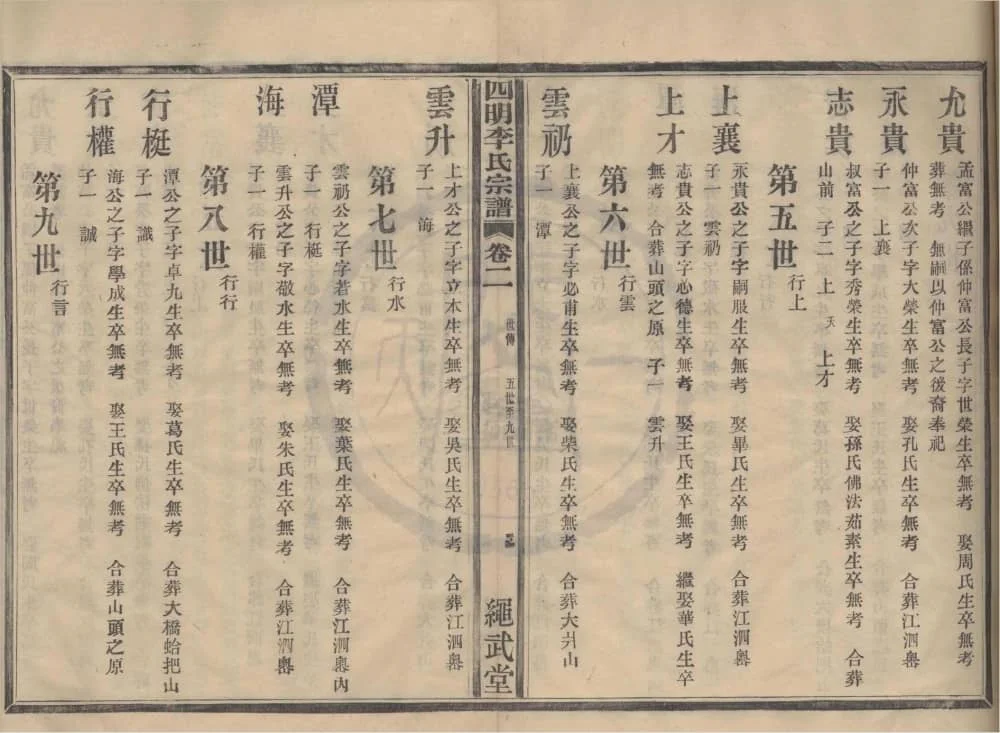 允貴
孟富公繼子係仲富公長子字世榮生卒無考　娶周氏生卒無考
葬無考　無嗣以仲富公之後裔奉祀
永貴
仲富公次子字大榮生卒無考　娶孔氏生卒無考　合葬江泗嶴
子一　上襄
志貴
叔富公之子字秀榮生卒無考　娶孫氏佛法茹素生卒無考　合葬
山前　子二　上　夭　上才
第五世　行上
上襄
永貴公之子字嗣服生卒無考　娶畢氏生卒無考　合葬江泗嶴
子一　雲礽
上才
志貴公之子字心德生卒無考　娶王氏生卒無考　繼娶華氏生卒
無考　合葬山頭之原　子一　雲升
第六世　行雲
雲礽
上襄公之子字必甫生卒無考　娶柴氏生卒無考　合葬大爿山
子一　潭
四明李氏宗譜　卷二　世傳　五世至九世　繩武堂
雲升
上才公之子字立木生卒無考　娶吳氏生卒無考　合葬江泗嶴
子一　海
第七世　行水
潭
雲礽公之子字若水生卒無考　娶葉氏生卒無考　合葬江泗嶴內
子一　行梃
海
雲升公之子字敬水生卒無考　娶朱氏生卒無考　合葬江泗嶴
子一　行權
第八世　行行
行梃
潭公之子字卓九生卒無考　娶葛氏生卒無考　合葬大橋蛤把山
子一　識
行權
海公之子字學成生卒無考　娶王氏生卒無考　合葬山頭之原
子一　誠
第九世　行言